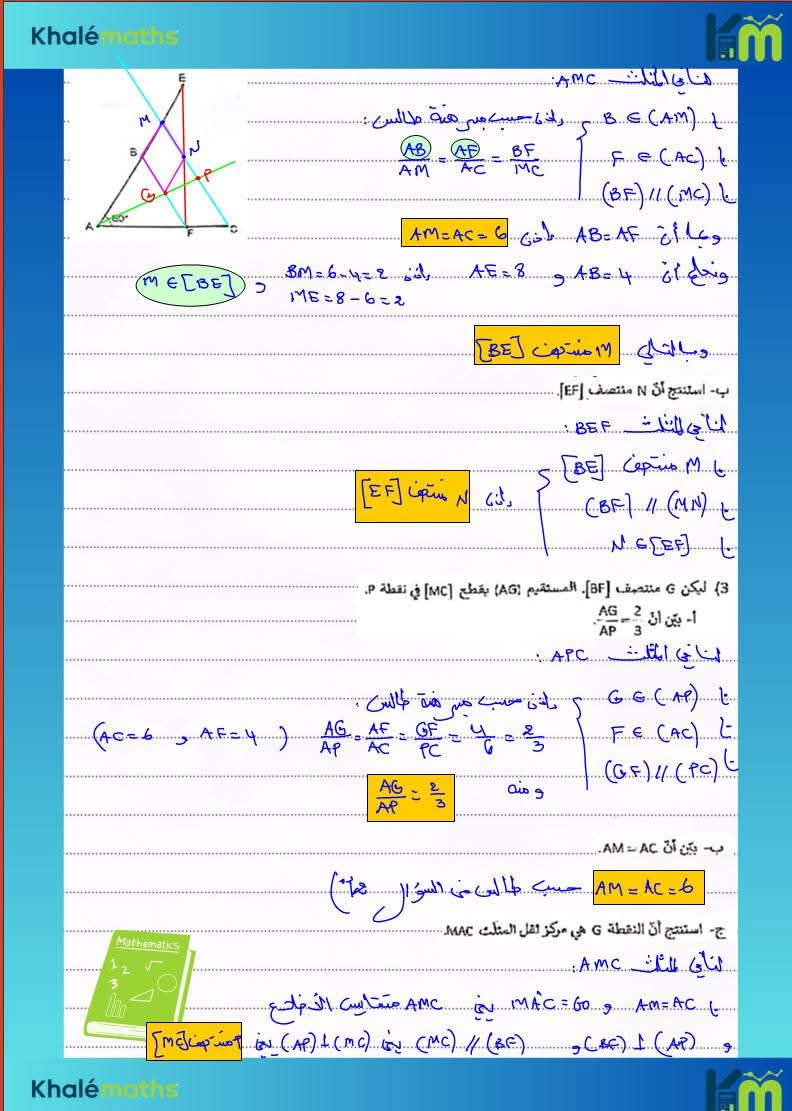 Khalémaths
لنا في المثلث AMC:
لنا B ∈ (AM)
لنا F ∈ (AC)
لنا (BF) // (MC)
إذن حسب مبرهنة طالس:
AB/AM = AF/AC = BF/MC
وبما أنّ AB=AF إذن AM=AC=6
ونعلم أنّ AB=4 و AE=8 إذن BM=6-4=2
ME=8-6=2
و M∈[BE]
وبالتالي M منتصف [BE]
ب- استنتج أنّ N منتصف [EF].
لنا في المثلث BEF:
لنا M منتصف [BE]
لنا (MN) // (BF)
لنا N∈[EF]
إذن N منتصف [EF]
3) ليكن G منتصف [BF]. المستقيم (AG) يقطع [MC] في نقطة P.
أ- بيّن أنّ AG/AP = 2/3.
لنا في المثلث APC:
لنا G∈(AP)
لنا F∈(AC)
لنا (GF) // (PC)
إذن حسب مبرهنة طالس:
AG/AP = AF/AC = GF/PC = 4/6 = 2/3 (AF=4 و AC=6)
ومنه AG/AP = 2/3
ب- بيّن أنّ AM=AC.
AM=AC=6 حسب طالس في السؤال
ج- استنتج أنّ النقطة G هي مركز ثقل المثلث MAC.
لنا في المثلث AMC:
لنا AM=AC و MÂC=60 يعني AMC متقايس الأضلاع
و (AP)⊥(BF) و (BF)//(MC) يعني (AP)⊥(MC) يعني P منتصف [MC]
E
M
B
N
P
G
A
60°
F
C
Mathematics
1 2 3
Khalémaths